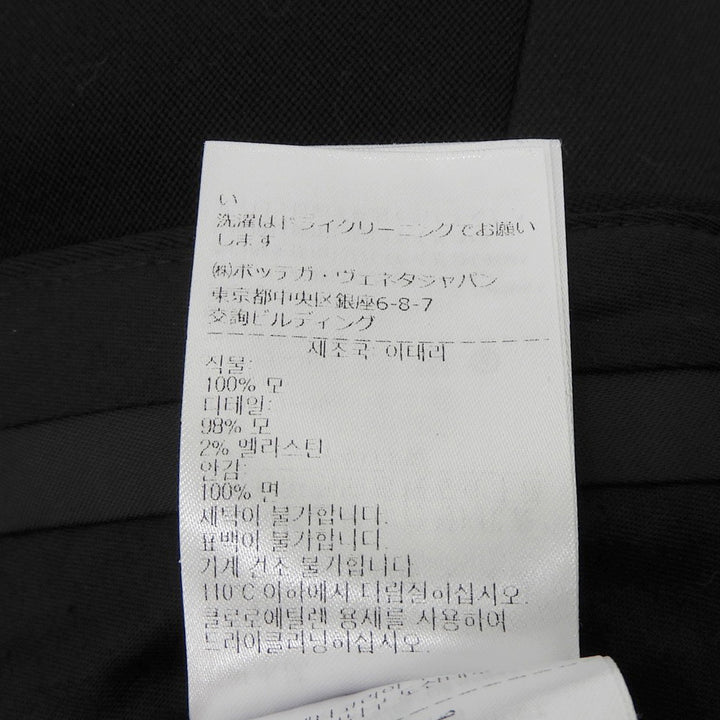 い
洗濯はドライクリーニングでお願い
します
㈱ボッテガ・ヴェネタジャパン
東京都中央区銀座6-8-7
交詢ビルディング
제조국: 이태리
직물:
100% 모
디테일:
98% 모
2% 엘라스틴
안감:
100% 면
세탁이 불가합니다.
표백이 불가합니다.
기계 건조 불가합니다
110°C 이하에서 다림질하십시오.
클로로에틸렌 용제를 사용하여
드라이클리닝하십시오.